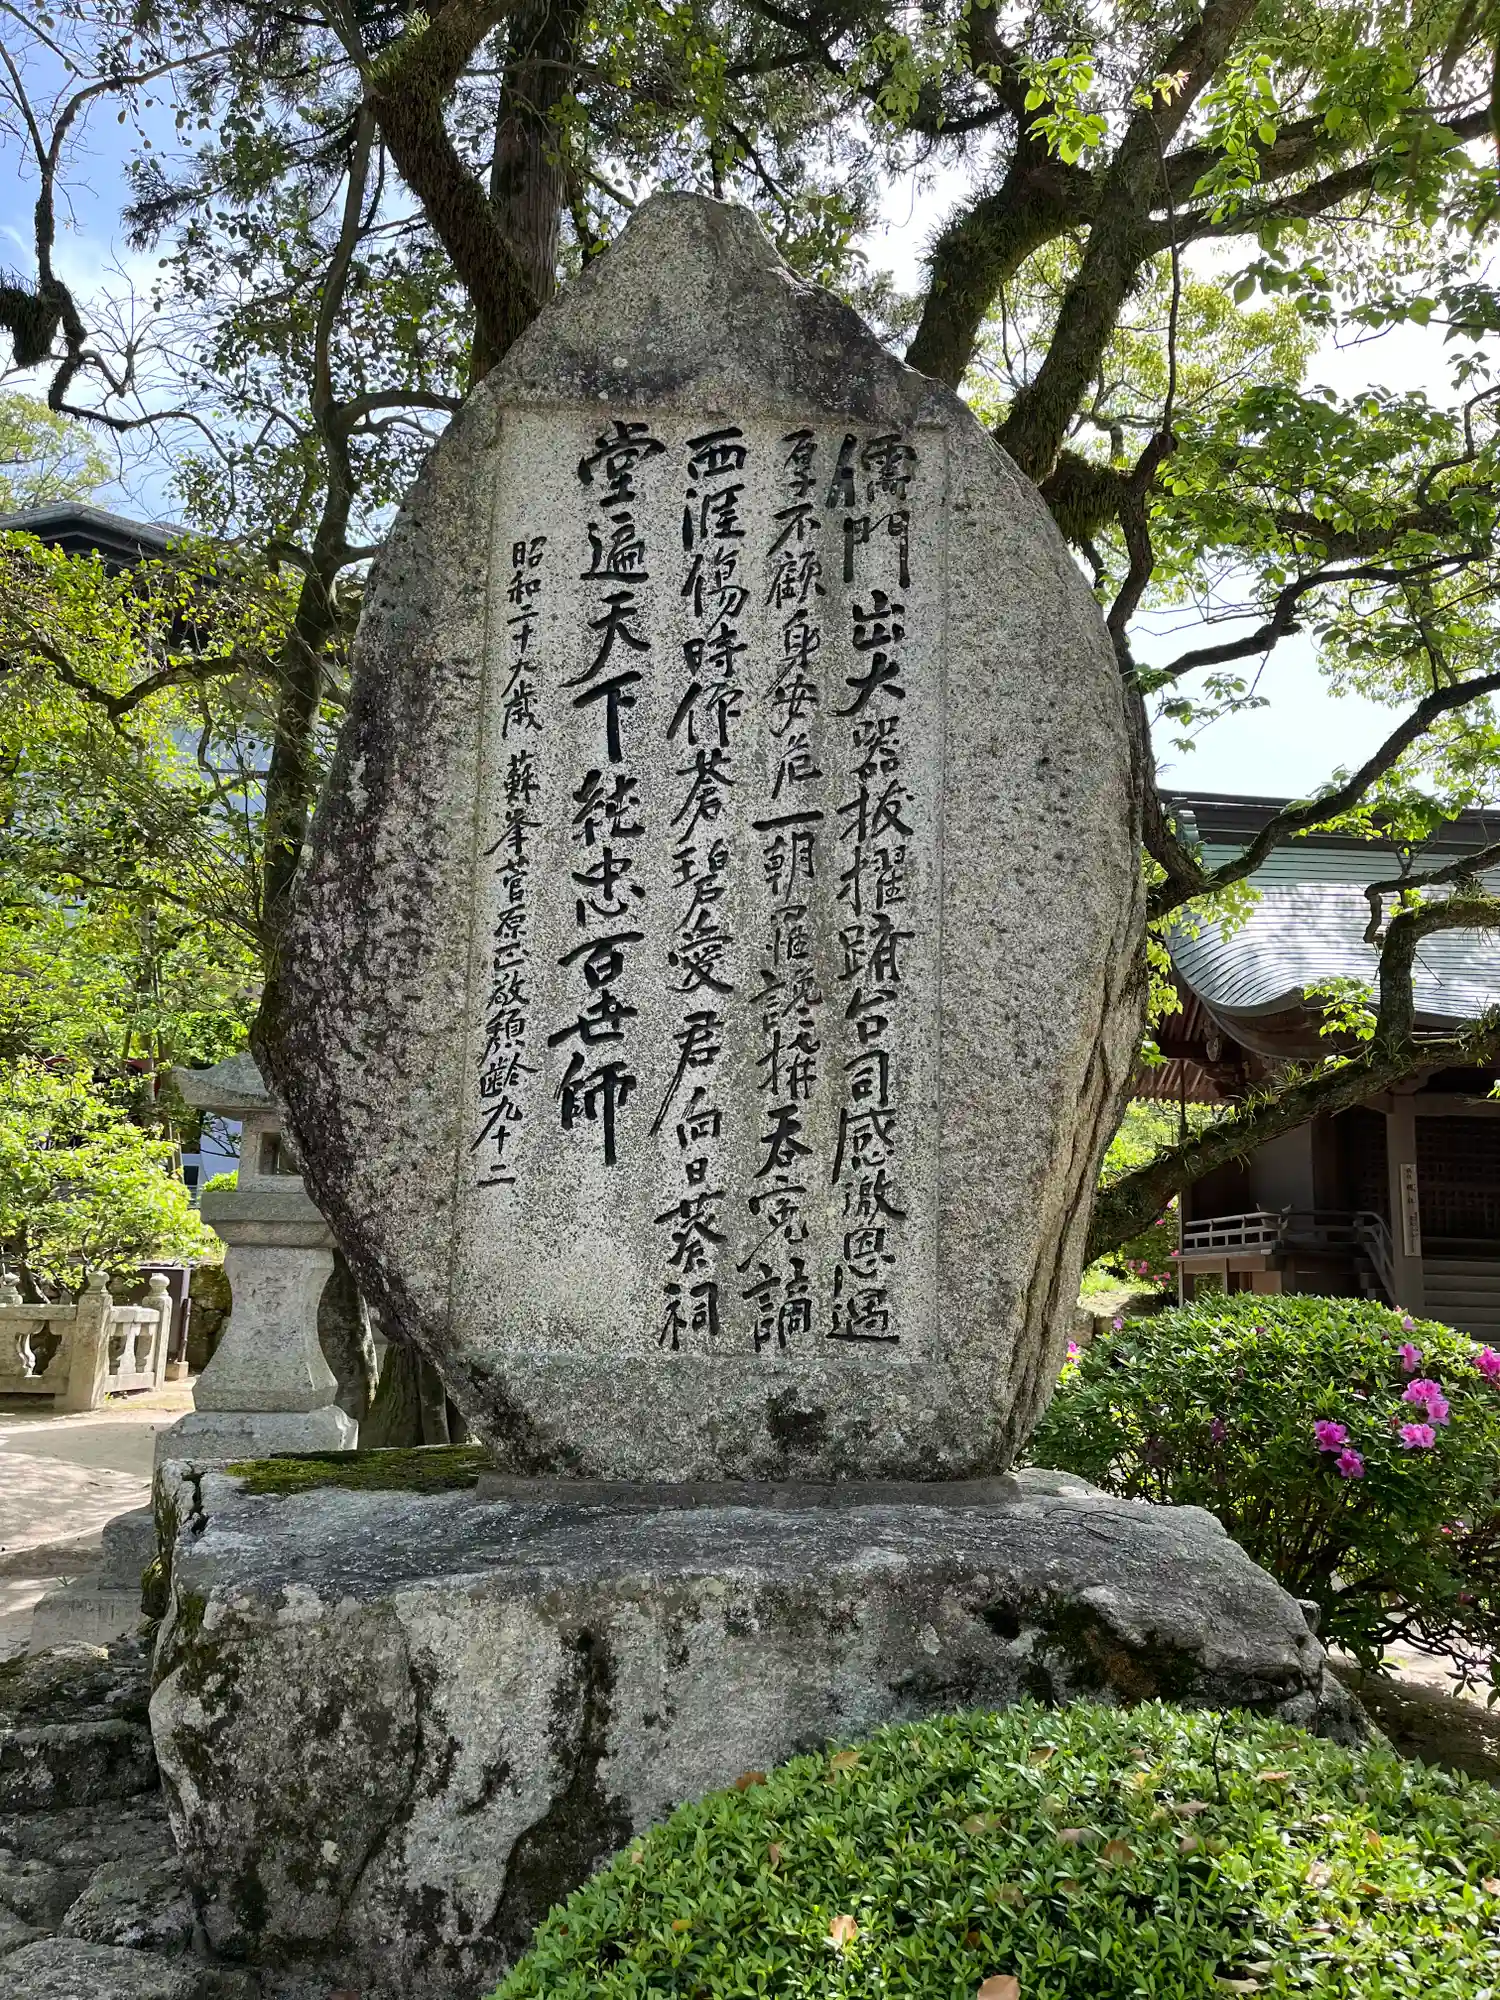 儒門出大器抜擢躋台司感激恩遇
厚不顧身安危一朝罹讒構呑寃謫
西涯傷時作蒼碧愛君向日葵祠
堂遍天下純忠百世師
昭和二十九歳 蘇峯菅原正敬頽齢九十二